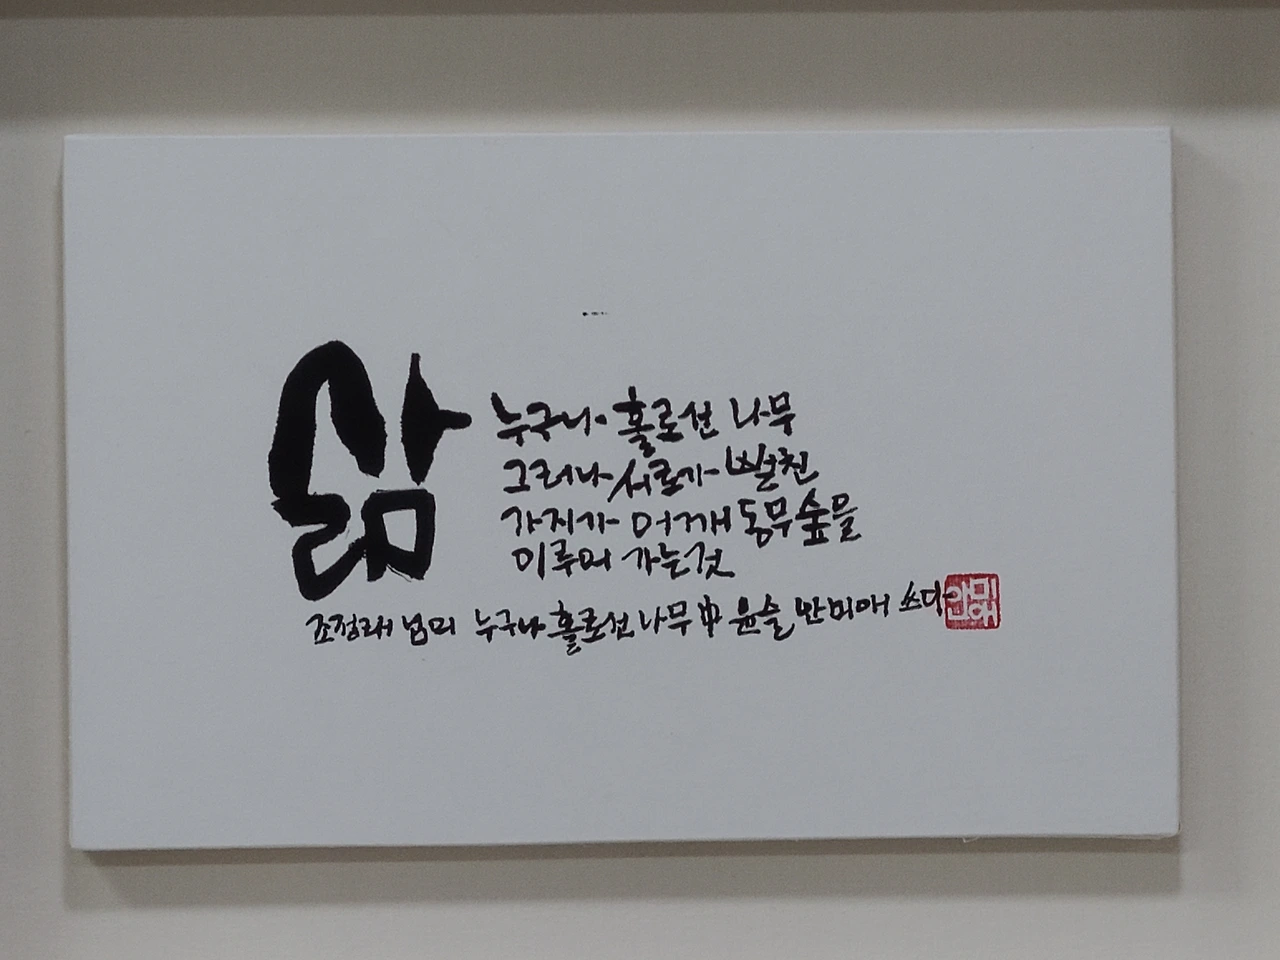 삶
누구나 홀로선 나무
그러나 서로가 뻗친
가지가 어깨동무숲을
이루어 가는것
조정래 님의 누구나 홀로선 나무 中 윤슬 안미애 쓰다
안미애